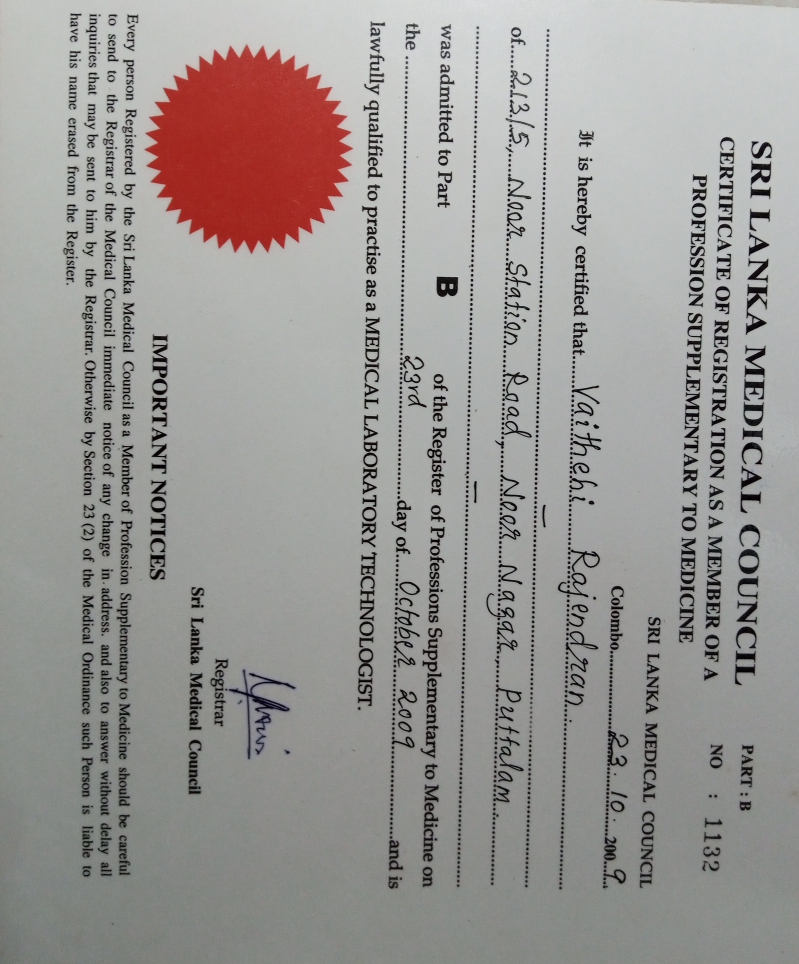 SRI LANKA MEDICAL COUNCIL
CERTIFICATE OF REGISTRATION AS A MEMBER OF A
PROFESSION SUPPLEMENTARY TO MEDICINE
PART : B
NO : 1132
SRI LANKA MEDICAL COUNCIL
Colombo 23. 10. 2009
It is hereby certified that Vaithehi Rajendran.
of 213/5, Noor Station Road, Noor Nagar, Puttalam.
was admitted to Part B of the Register of Professions Supplementary to Medicine on
the 23rd day of October 2009 and is
lawfully qualified to practise as a MEDICAL LABORATORY TECHNOLOGIST.
Registrar
Sri Lanka Medical Council
IMPORTANT NOTICES
Every person Registered by the Sri Lanka Medical Council as a Member of Profession Supplementary to Medicine should be careful
to send to the Registrar of the Medical Council immediate notice of any change in address. and also to answer without delay all
inquiries that may be sent to him by the Registrar. Otherwise by Section 23 (2) of the Medical Ordinance such Person is liable to
have his name erased from the Register.